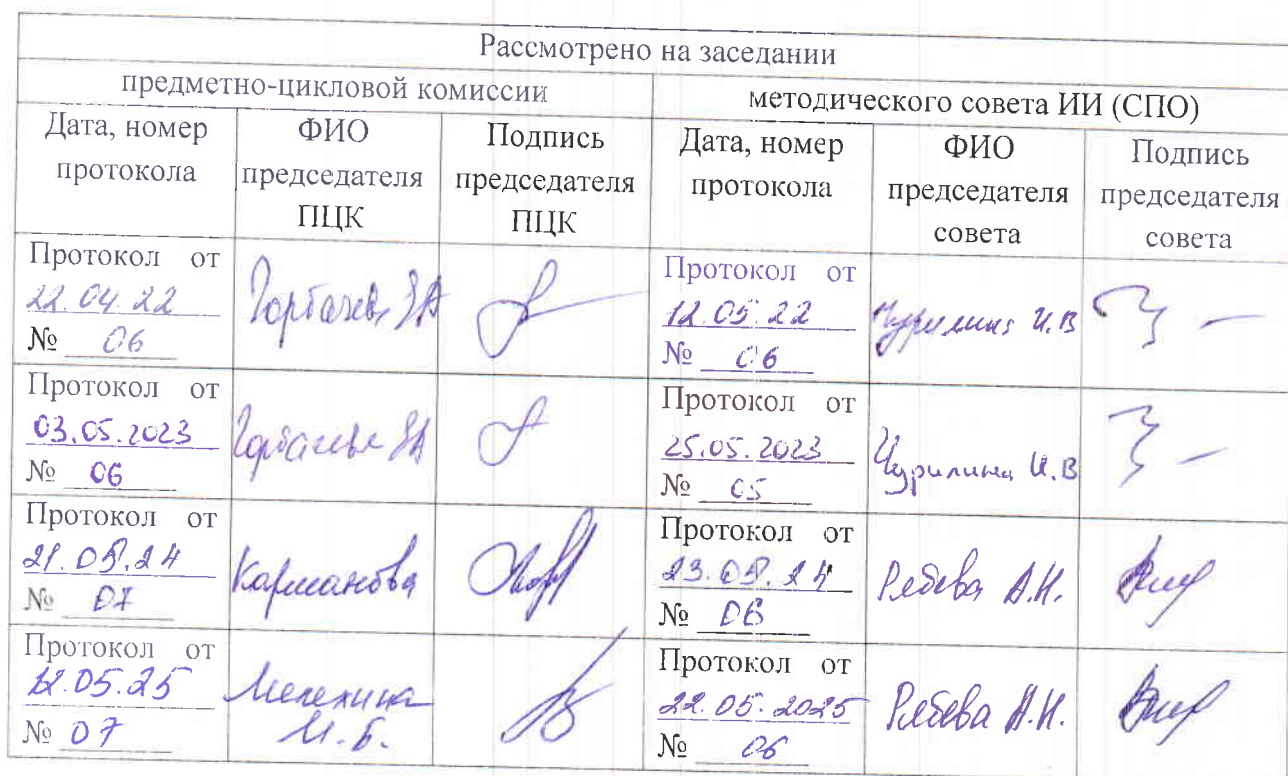 Рассмотрено на заседании
предметно-цикловой комиссии
методического совета ИИ (СПО)
Дата, номер протокола
ФИО председателя ПЦК
Подпись председателя ПЦК
Дата, номер протокола
ФИО председателя совета
Подпись председателя совета
Протокол от
22.04.22
№ 06
Протокол от
12.05.22
№ 06
Чурилина И.В
Протокол от
03.05.2023
№ 06
Протокол от
25.05.2023
№ 05
Чурилина И.В
Протокол от
21.05.24
№ 07
Карманова
Протокол от
23.05.24
№ 06
А.Н.
Протокол от
12.05.25
№ 07
Мелехина
И.Б.
Протокол от
22.05.2025
№ 06
А.Н.